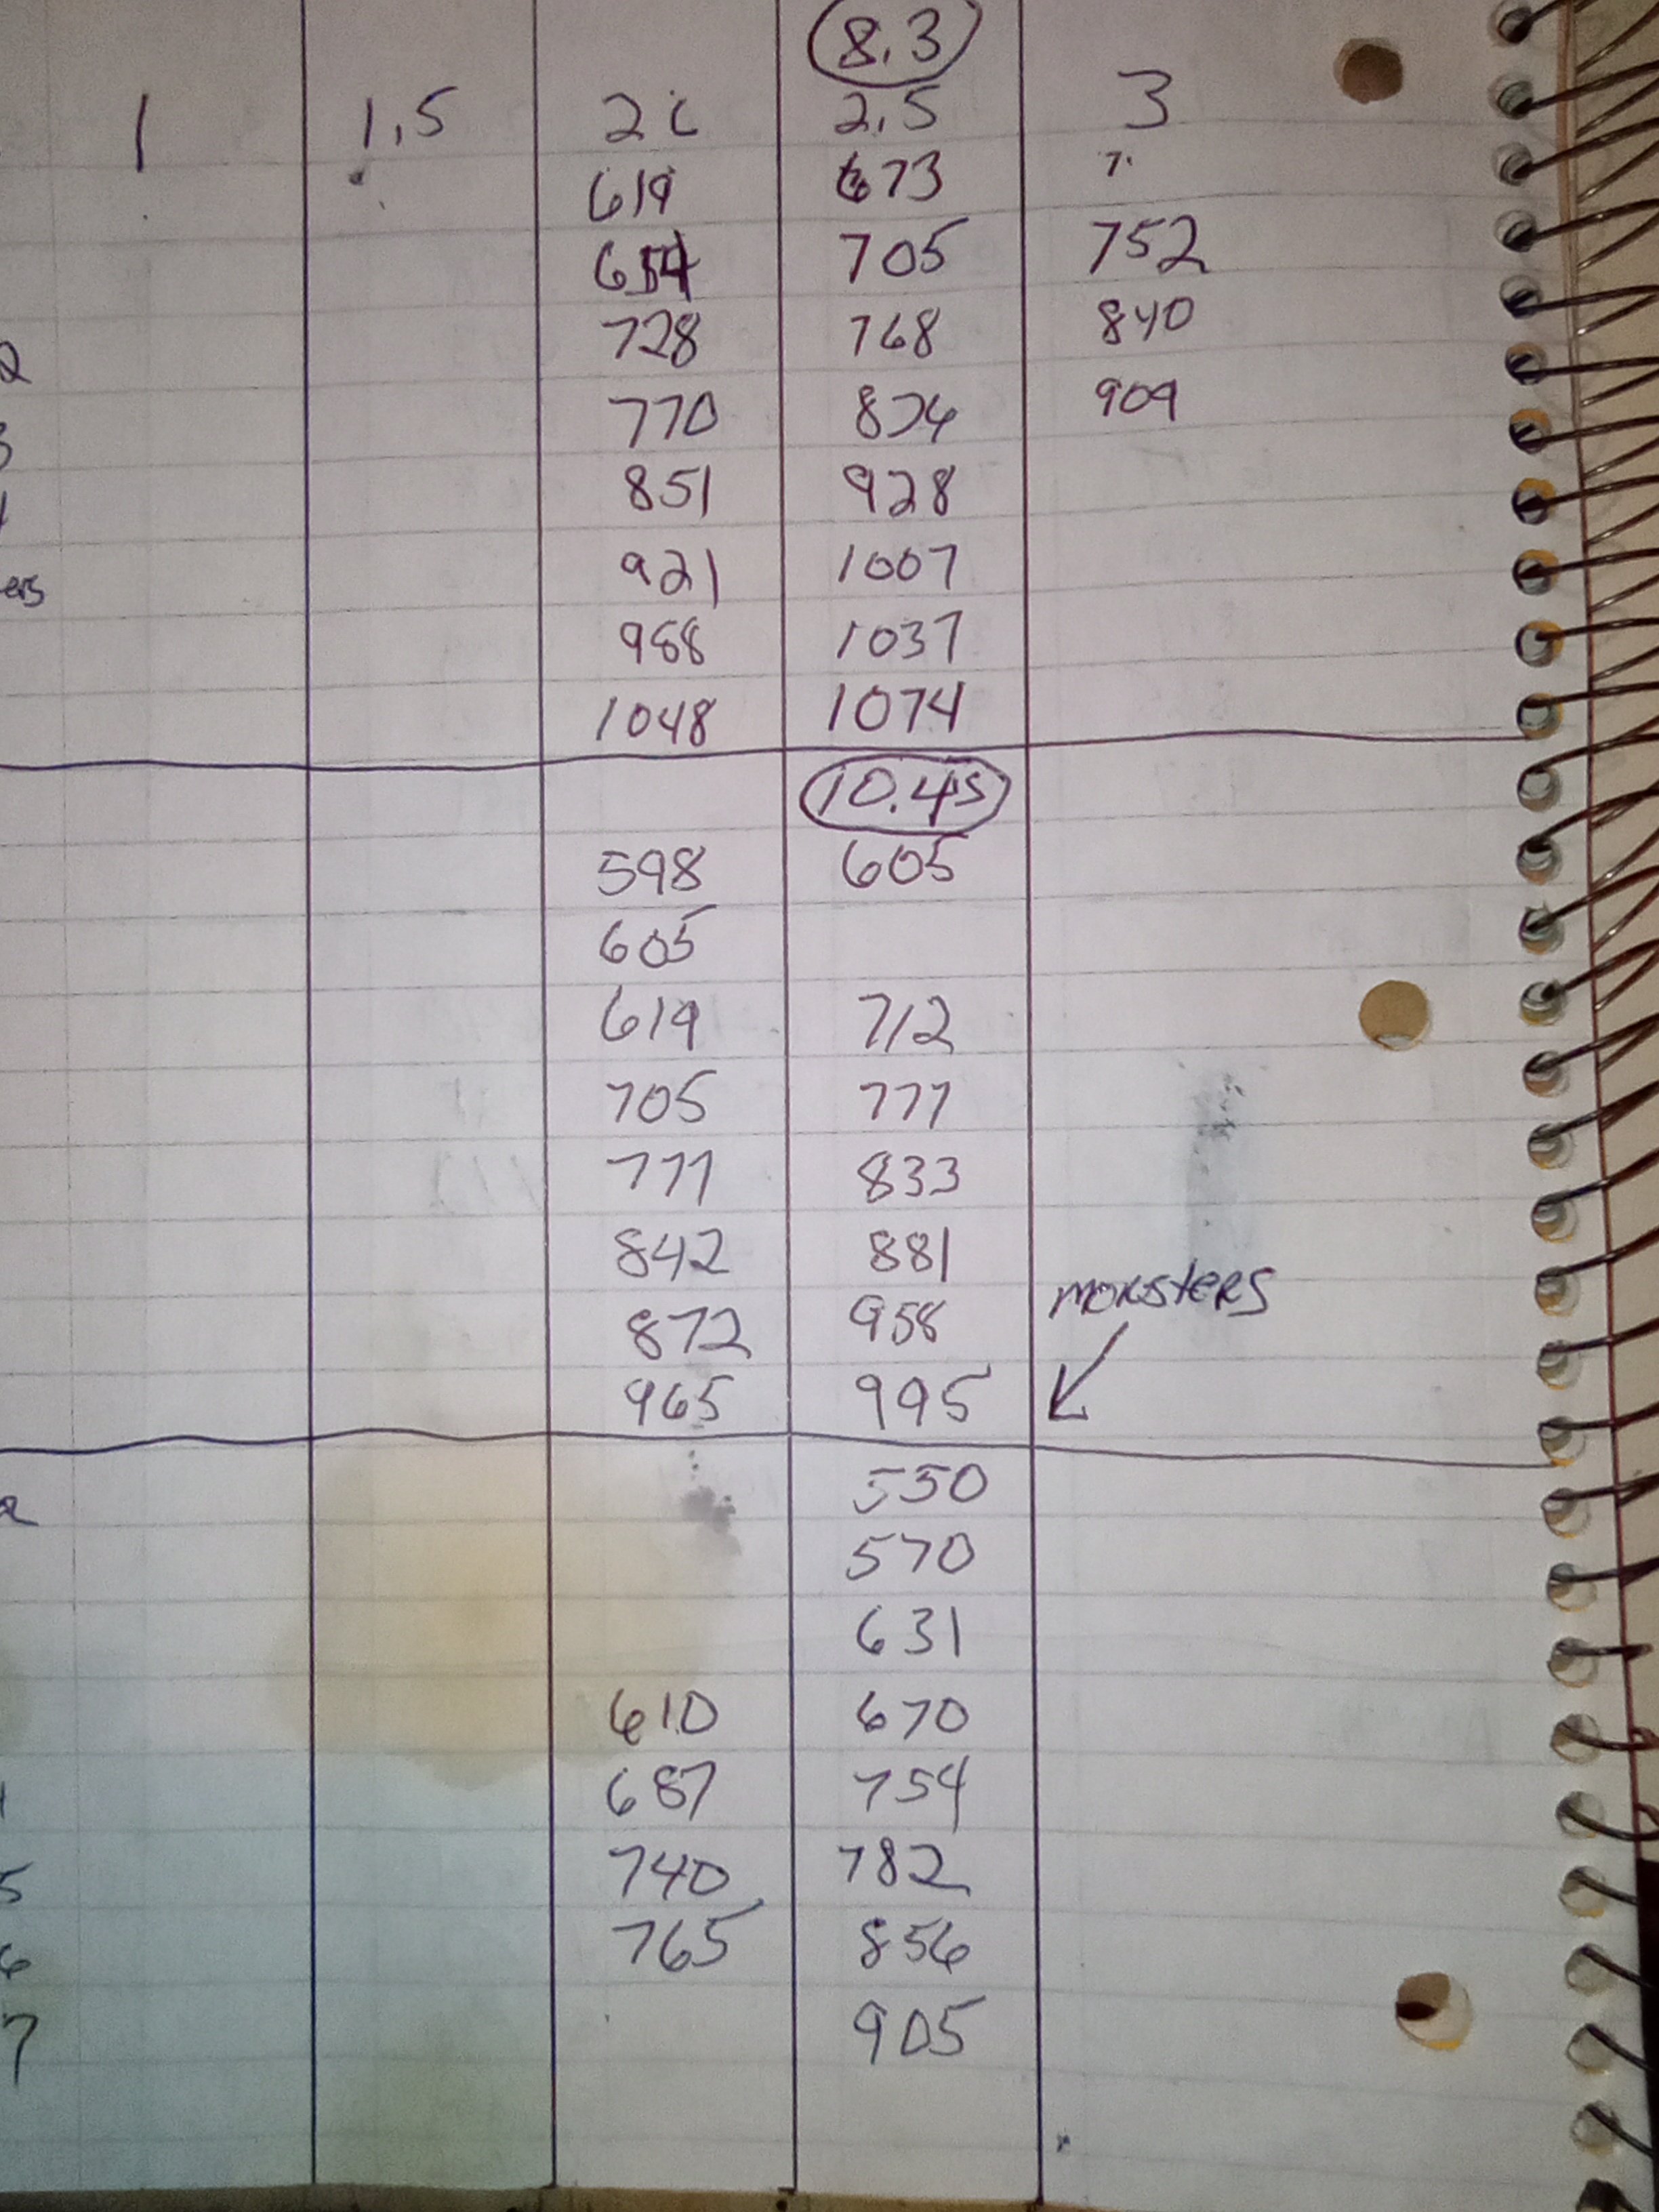 8.3
1 1.5 2 2.5 3
619 673
654 705 752
2 728 768 840
3 770 909
851 928
ers 921 1007
968 1037
1048 1074
10.45
598 605
605
619 712
705 777
777 833
842 881
monsters
872 958
965 995
550
570
631
610 670
687 754
5 740 782
6 765 856
7 905